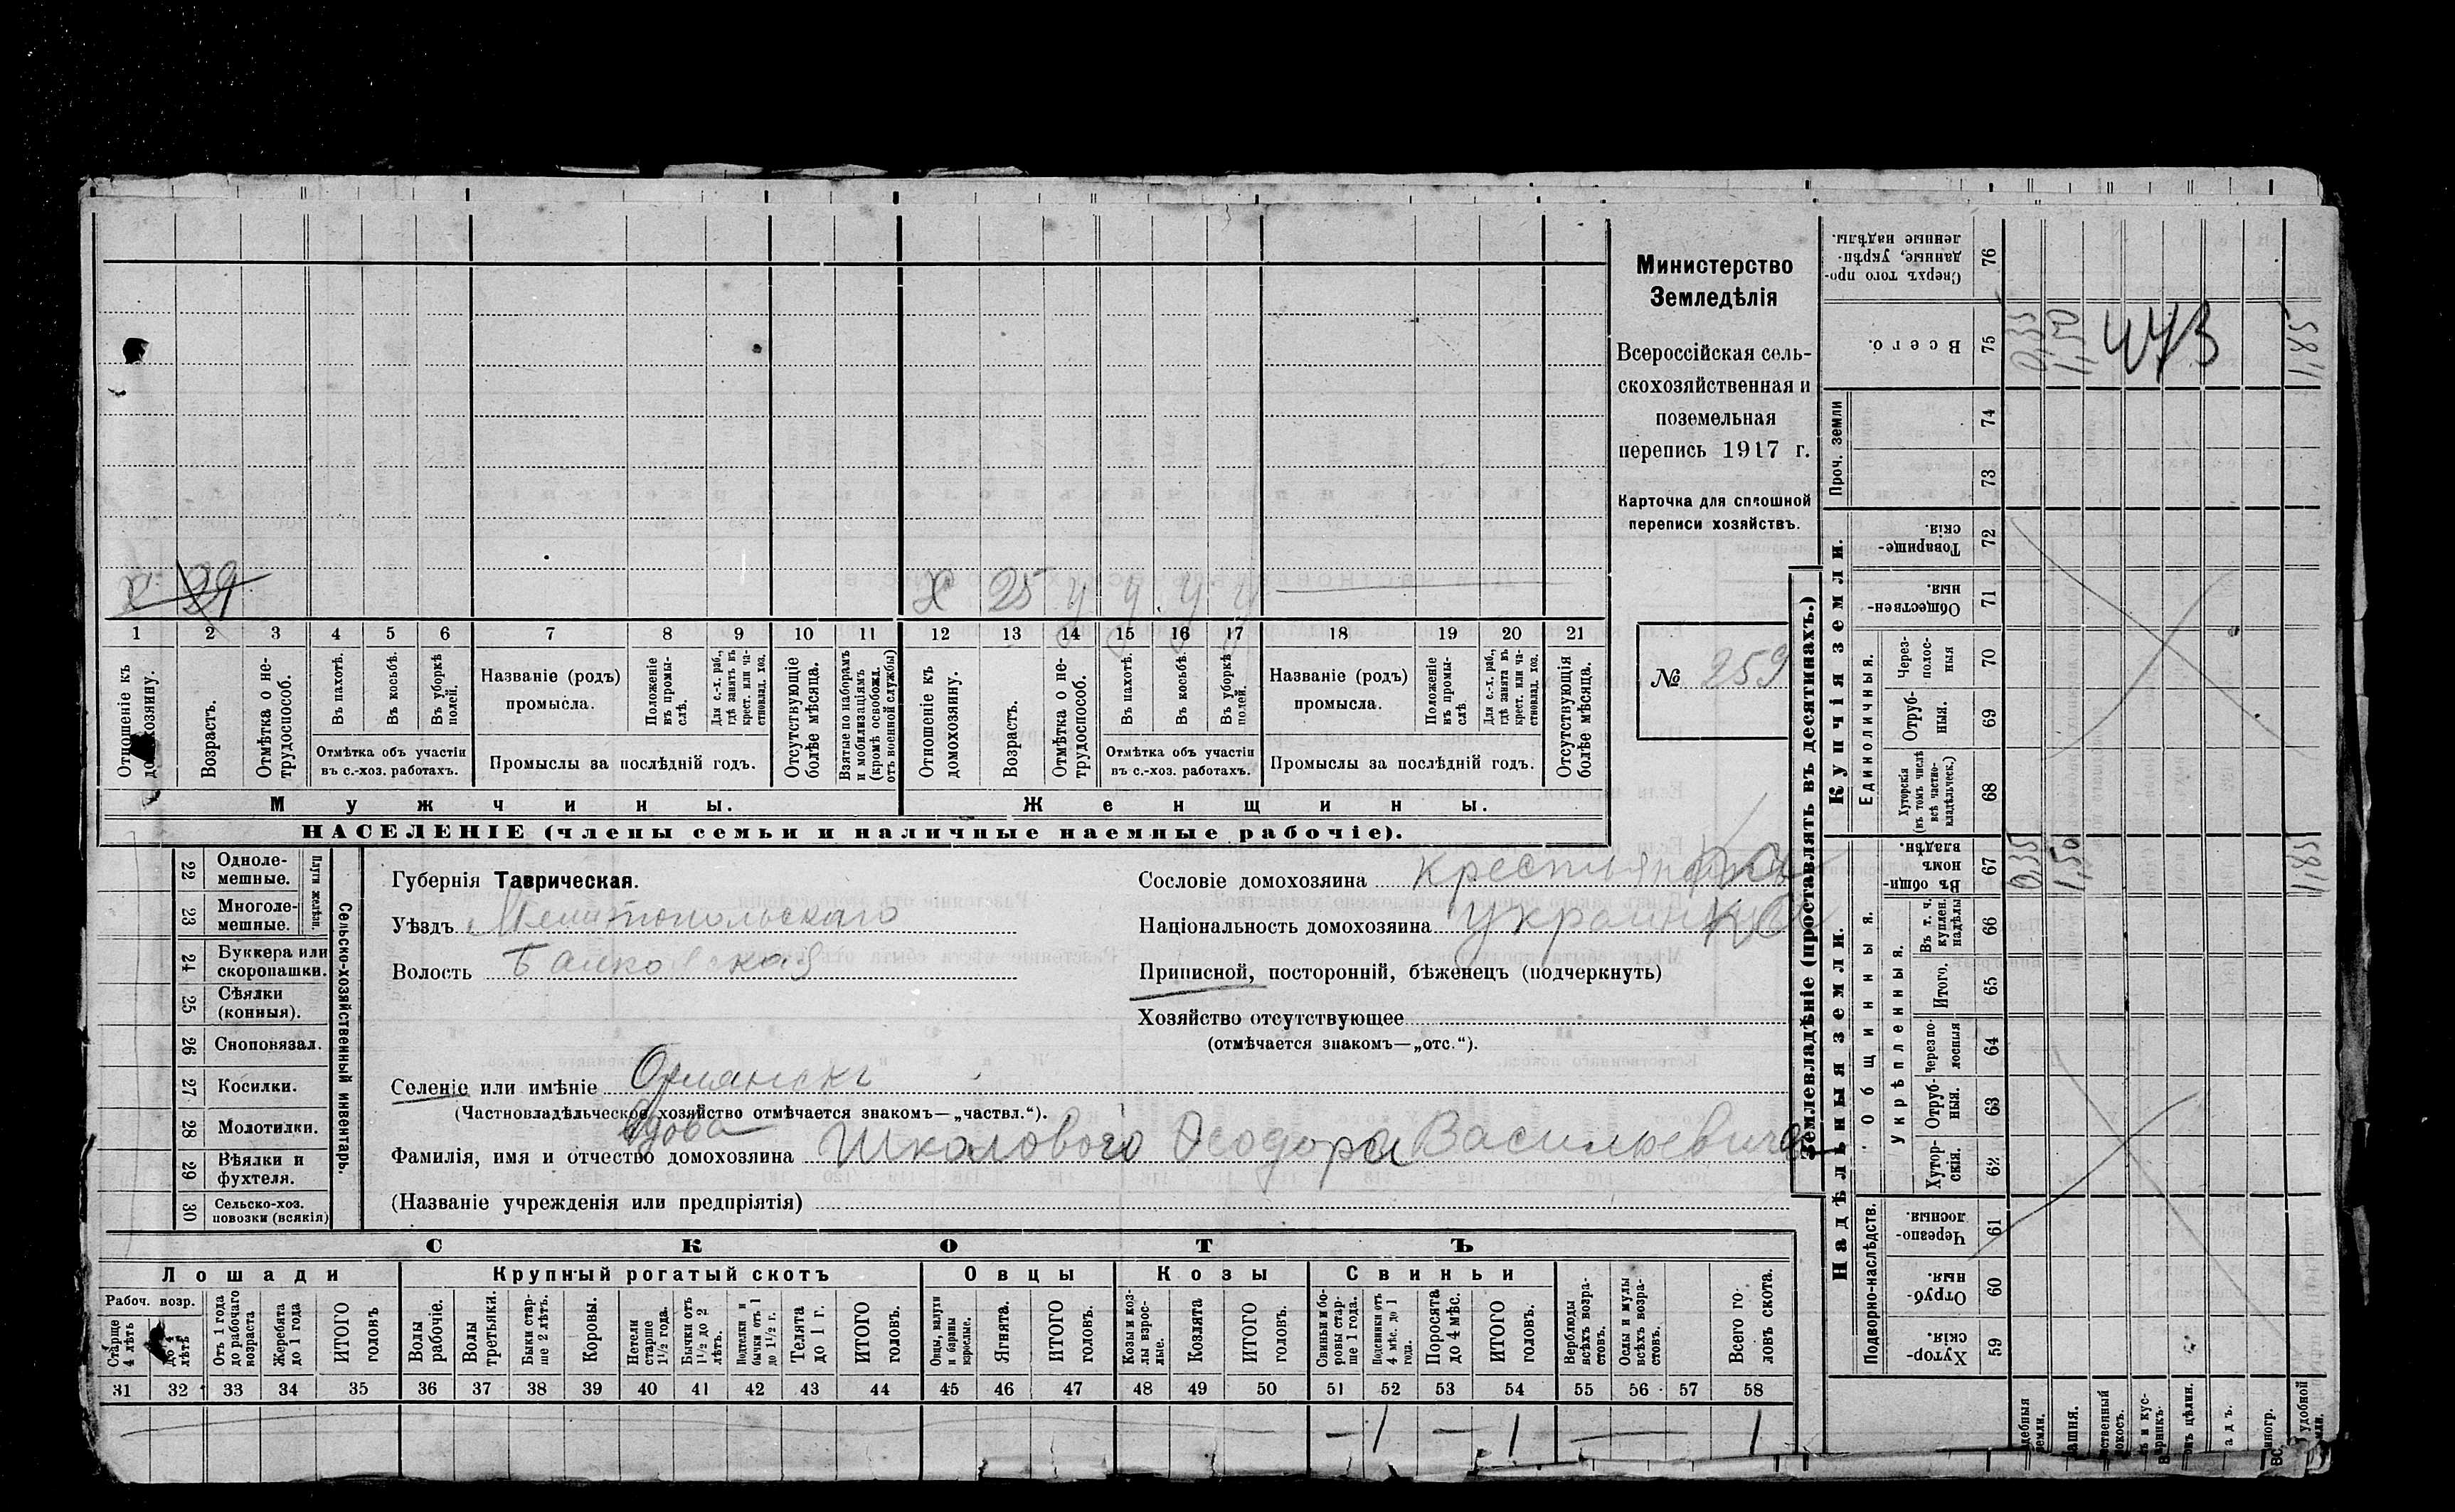 х 29
х 25 у у у у
1 2 3 4 5 6 7 8 9 10 11 12 13 14 15 16 17 18 19 20 21
Отношеніе къ домохозяину.
Возрастъ.
Отмѣтка о не-
трудоспособ.
Въ пахотѣ.
Въ косьбѣ.
Въ уборкѣ
полей.
Отмѣтка объ участіи
въ с.-хоз. работахъ.
Названіе (родъ)
промысла.
Положеніе
въ промы-
слѣ.
Для с.-х. раб.,
гдѣ занятъ въ
крест. или ча-
стновлад. хоз.
Промыслы за послѣдній годъ.
Отсутствующіе
болѣе мѣсяца.
Взятые по наборамъ
и мобилизаціямъ
(кромѣ освобожд.
отъ военной службы)
Отношеніе къ
домохозяину.
Возрастъ.
Отмѣтка о не-
трудоспособ.
Въ пахотѣ.
Въ косьбѣ.
Въ уборкѣ
полей.
Отмѣтка объ участіи
въ с.-хоз. работахъ.
Названіе (родъ)
промысла.
Положеніе
въ промы-
слѣ.
Для с.-х. раб.,
гдѣ занята въ
крест. или ча-
стновлад. хоз.
Промыслы за послѣдній годъ.
Отсутствующія
болѣе мѣсяца.
Мужчины.
Женщины.
НАСЕЛЕНІЕ (члены семьи и наличные наемные рабочіе).
Министерство
Земледѣлія
Всероссійская сель-
скохозяйственная и
поземельная
перепись 1917 г.
Карточка для сплошной
переписи хозяйствъ.
№ 259
22 Одноле-
мешные.
23 Многоле-
мешные.
Плуги желѣзн.
24 Буккера или
скоропашки.
25 Сѣялки
(конныя).
26 Сноповязал.
27 Косилки.
28 Молотилки.
29 Вѣялки и
фухтеля.
30 Сельско-хоз.
повозки (всякія)
Сельско-хозяйственный инвентарь.
Губернія Таврическая.
Уѣздъ Мелитопольскаго
Волость
Селеніе или имѣніе
(Частновладѣльческое хозяйство отмѣчается знакомъ—„частвл.“).
вдова
Фамилія, имя и отчество домохозяина Школового Ѳеодора Васильевича
(Названіе учрежденія или предпріятія)
Сословіе домохозяина крестьянка
Національность домохозяина украинка
Приписной, посторонній, бѣженецъ (подчеркнуть)
Хозяйство отсутствующее
(отмѣчается знакомъ—„отс.“).
СКОТЪ
Лошади
Крупный рогатый скотъ
Овцы
Козы
Свиньи
Рабоч. возр.
Старще
4 лѣтъ
До 4
лѣтъ
Отъ 1 года
до рабочаго
возраста
Жеребята
до 1 года
ИТОГО
головъ
Волы
рабочіе.
Волы
третьяки.
Быки стар-
ше 2 лѣтъ.
Коровы.
Нетели
старше
1½ года.
Бычки отъ
1½ до 2
лѣтъ.
Подтелки и
бычки отъ 1
до 1½ г.
Телята
до 1 г.
ИТОГО
головъ.
Овцы, валухи
и бараны
взрослые.
Ягнята.
ИТОГО
головъ.
Козы и коз-
лы взрос-
лые.
Козлята
ИТОГО
головъ.
Свиньи и бо-
ровы стар-
ше 1 года.
Подсвинки отъ
4 мѣс. до 1
года.
Поросята
до 4 мѣс.
ИТОГО
головъ.
Верблюды
всѣхъ возра-
стовъ.
Ослы и мулы
всѣхъ возра-
стовъ.
Всего го-
ловъ скота.
31 32 33 34 35 36 37 38 39 40 41 42 43 44 45 46 47 48 49 50 51 52 53 54 55 56 57 58
— 1 — 1 — 1
Землевладѣніе (проставлять въ десятинахъ.)
Надѣльныя земли.
Купчія земли.
Проч. земли
Подворно-наслѣдств.
Общинныя.
Укрѣпленныя.
Единоличныя.
Сверхъ того про-
данные, укрѣп-
ленные надѣлы.
76
Всего.
75
0,35
1,50
473
1,85
74
73
Товарище-
скія.
72
Обществен-
ныя.
71
Через-
полос-
ныя
70
Отруб-
ныя.
69
Хуторскія
(въ томъ числѣ
всѣ частно-
владѣльческ.)
68
Въ общин-
номъ
владѣн.
67
0,35
1,50
1,85
Въ т. ч.
куплен.
надѣлы
66
Итого.
65
Черезпо-
лосныя
64
Отруб-
ныя.
63
Хутор-
скія.
62
Черезпо-
лосныя.
61
Отруб-
ныя.
60
Хутор-
скія
59